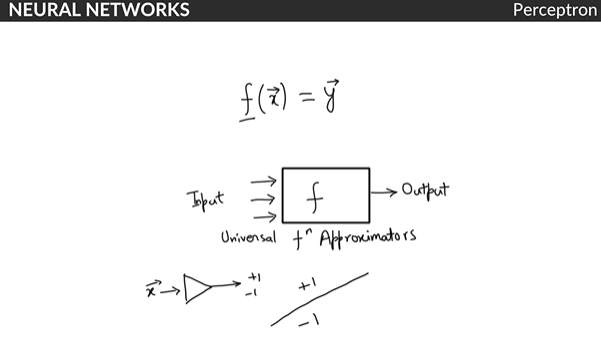 NEURAL NETWORKS Perceptron
f(x⃗) = y⃗
Input f Output
Universal fⁿ Approximators
x⃗ +1 +1
-1 -1